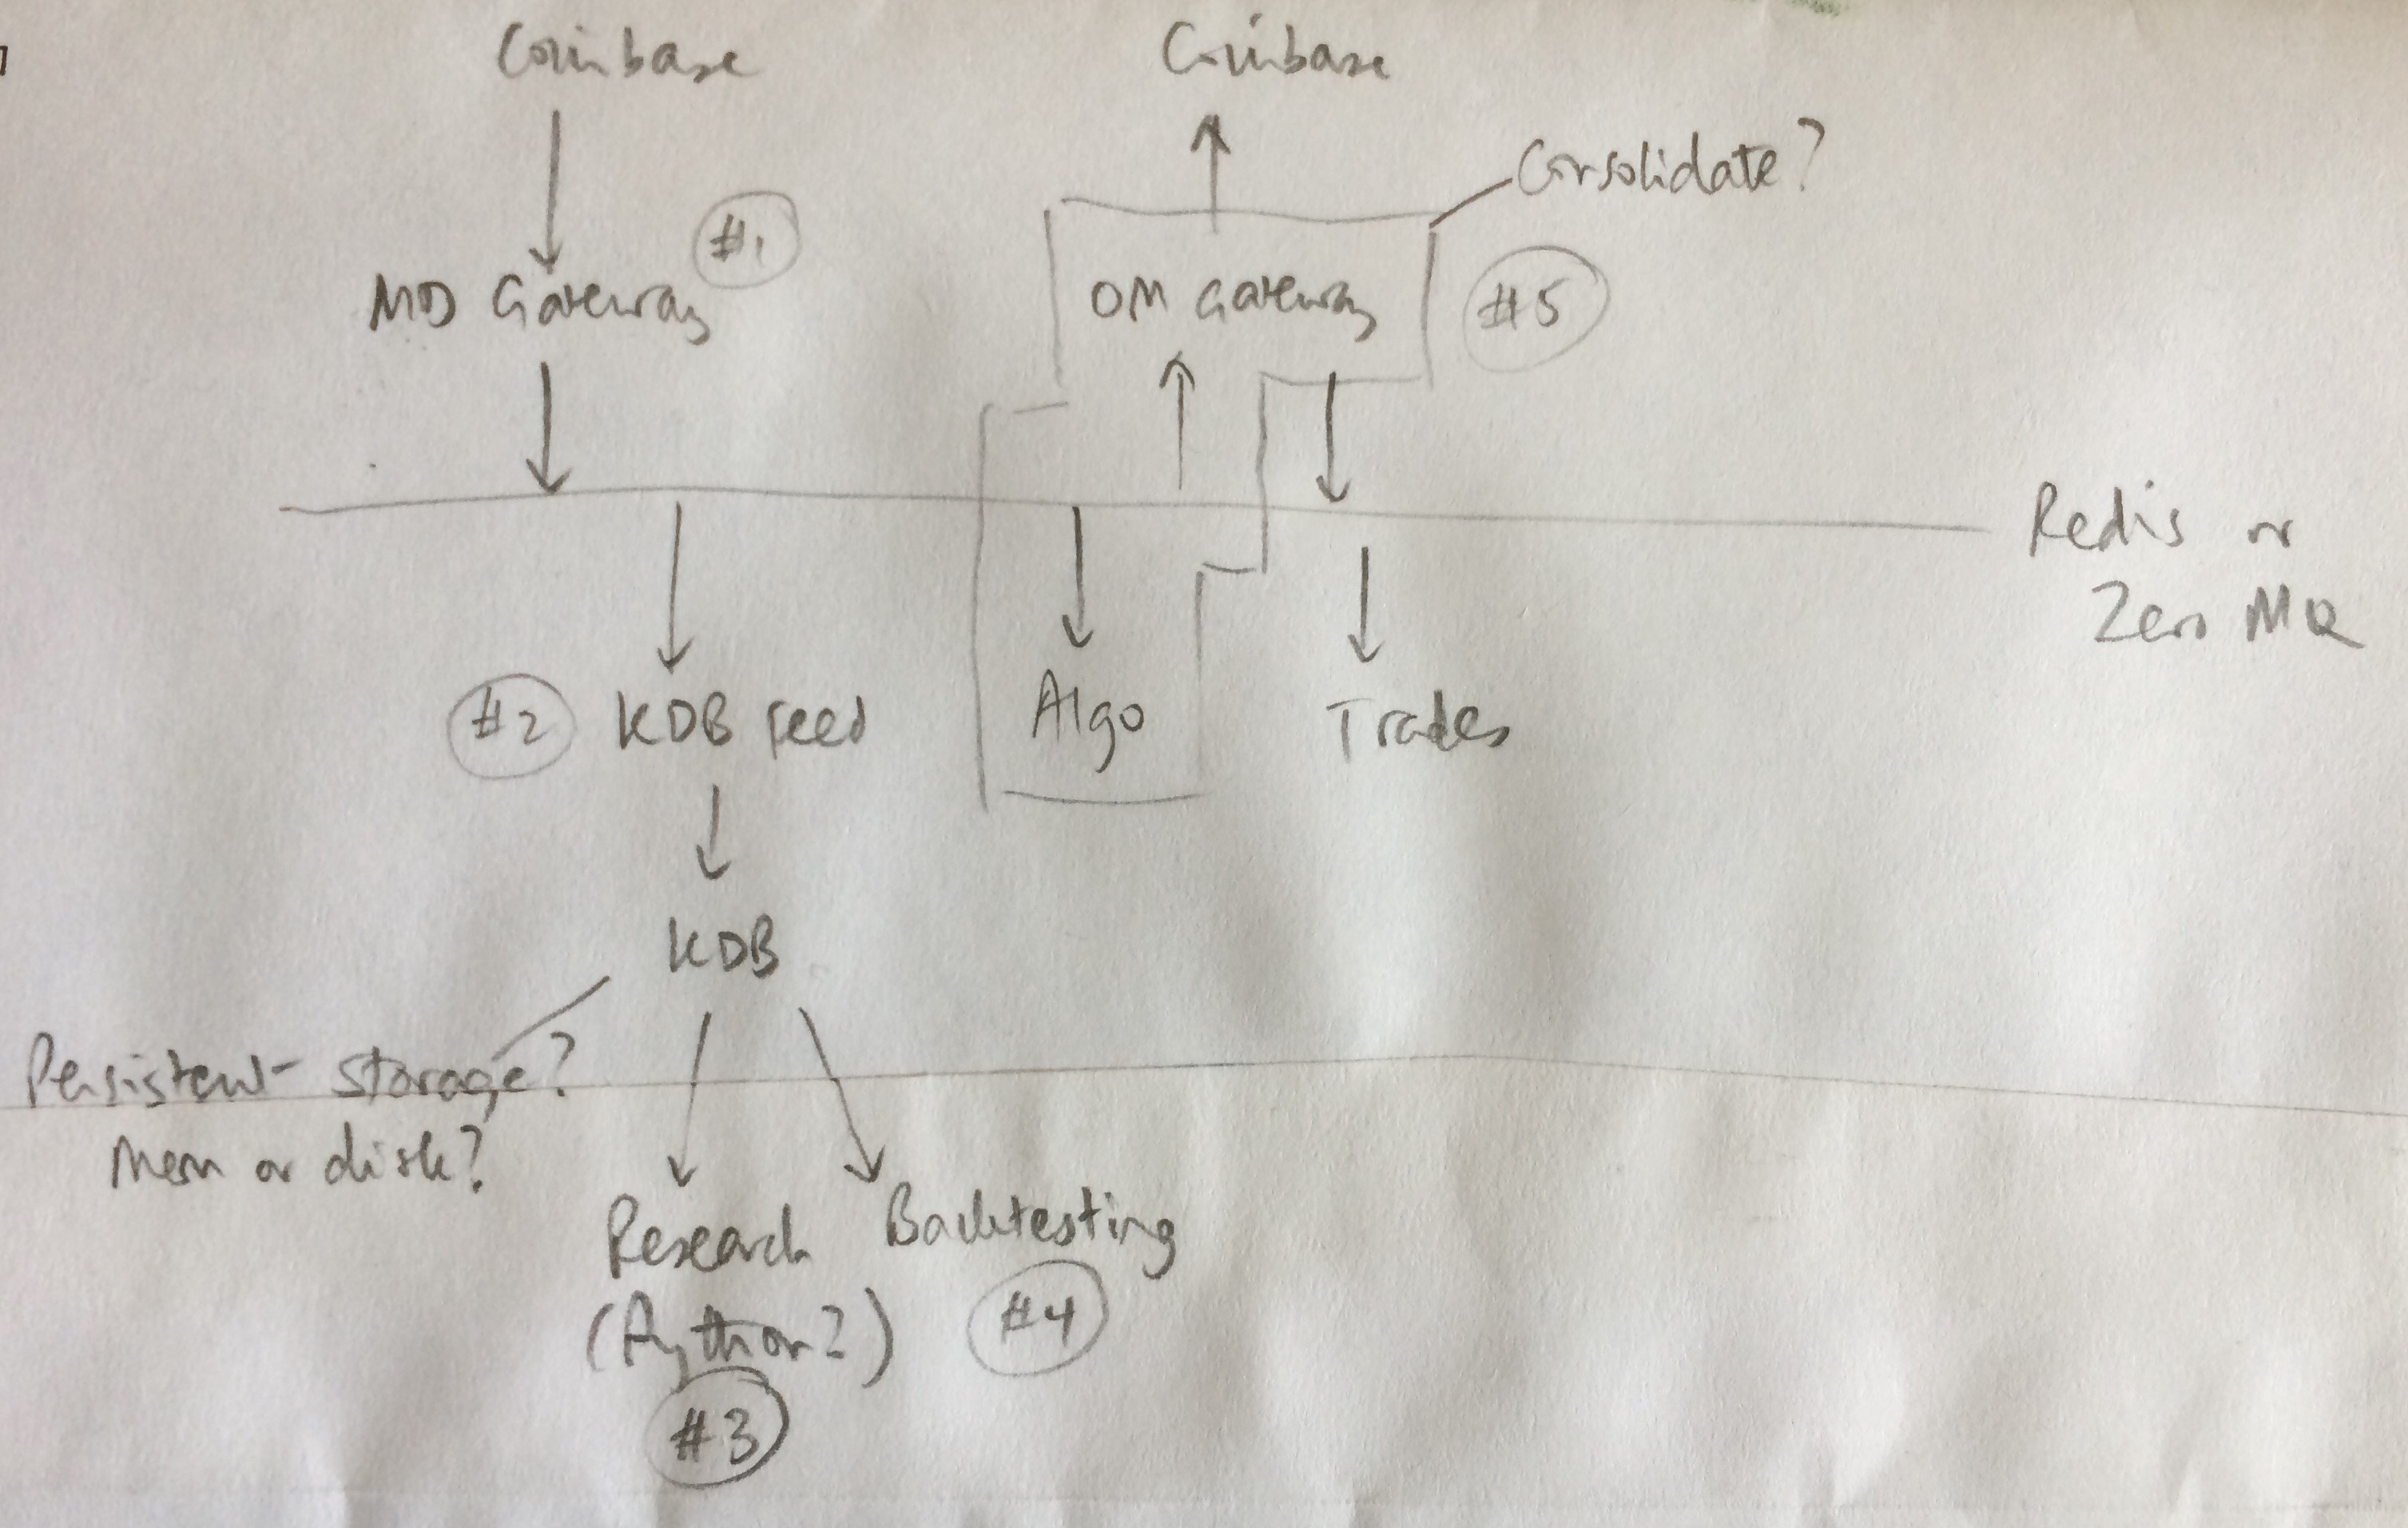 Coinbase
Coinbase
Consolidate?
#1
MD Gateway
OM Gateway
#5
Redis or
Zero MQ
#2
KDB feed
Algo
Trades
KDB
Persistent storage?
Mem or disk?
Research
Backtesting
(Python?)
#4
#3